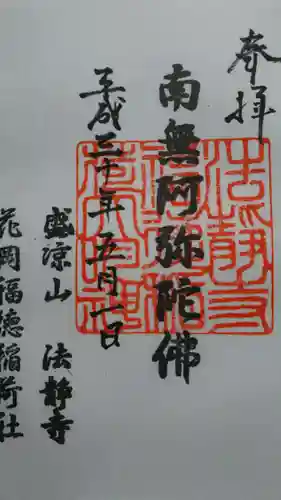 奉拝
南無阿弥陀佛
平成三十年五月一日
盛涼山 法静寺
花岡福徳稲荷社